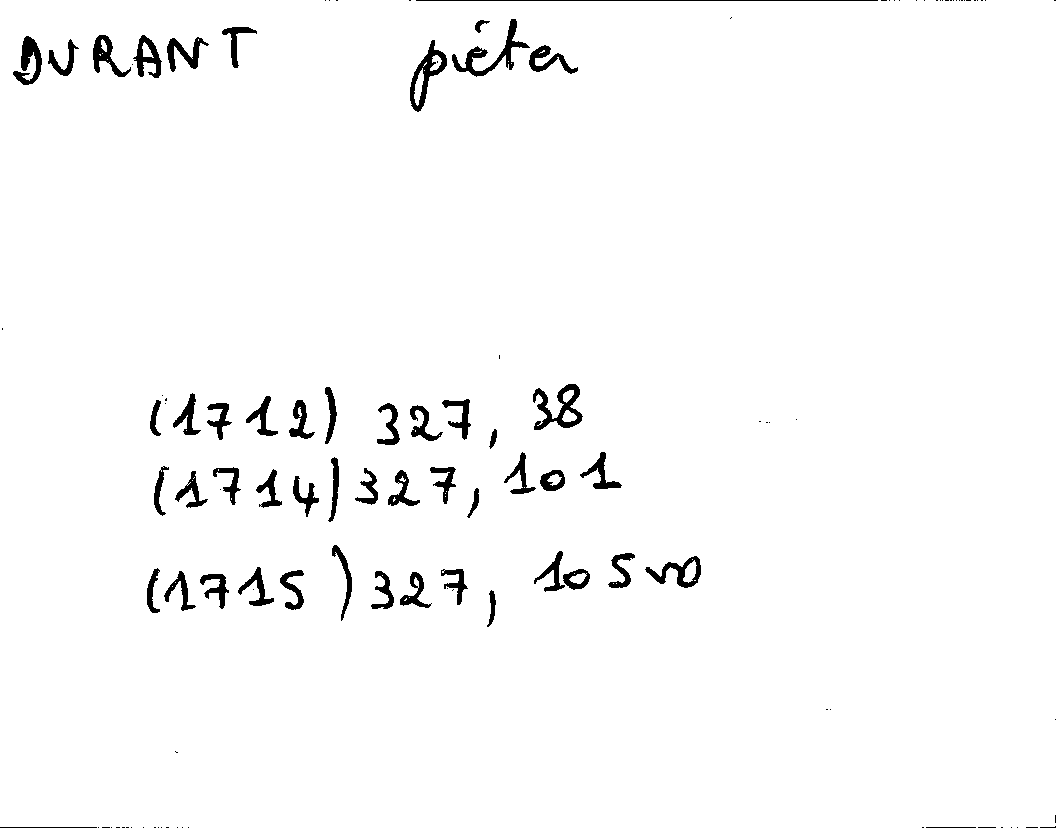 DURANT piéter
(1712) 327, 38
(1714) 327, 101
(1715) 327, 105 vo